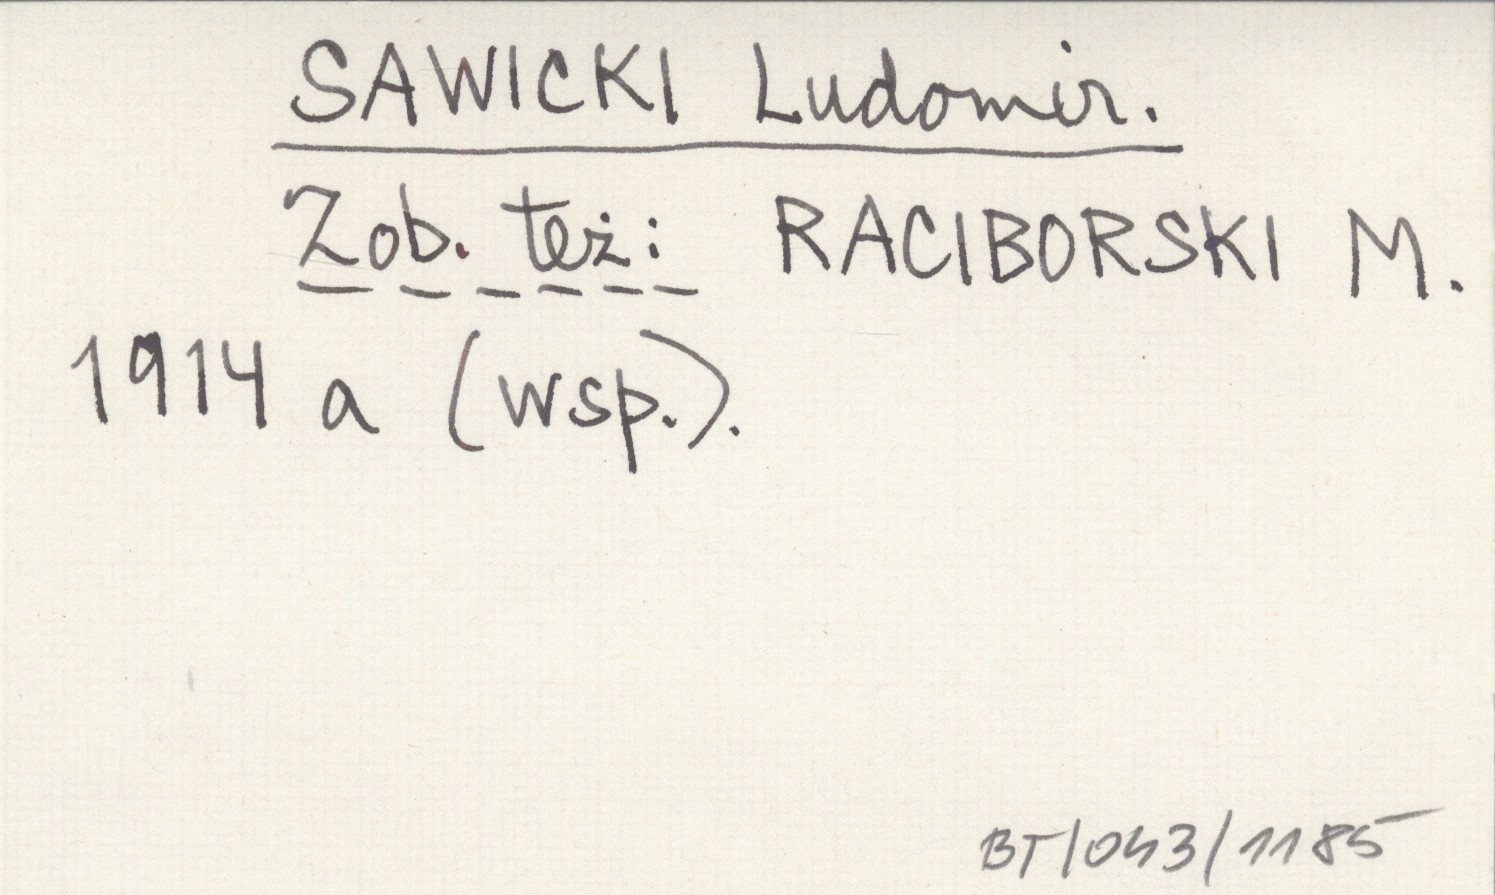 SAWICKI Ludomir.
Zob. też: RACIBORSKI M.
1914 a (wsp.).
BT/043/1185